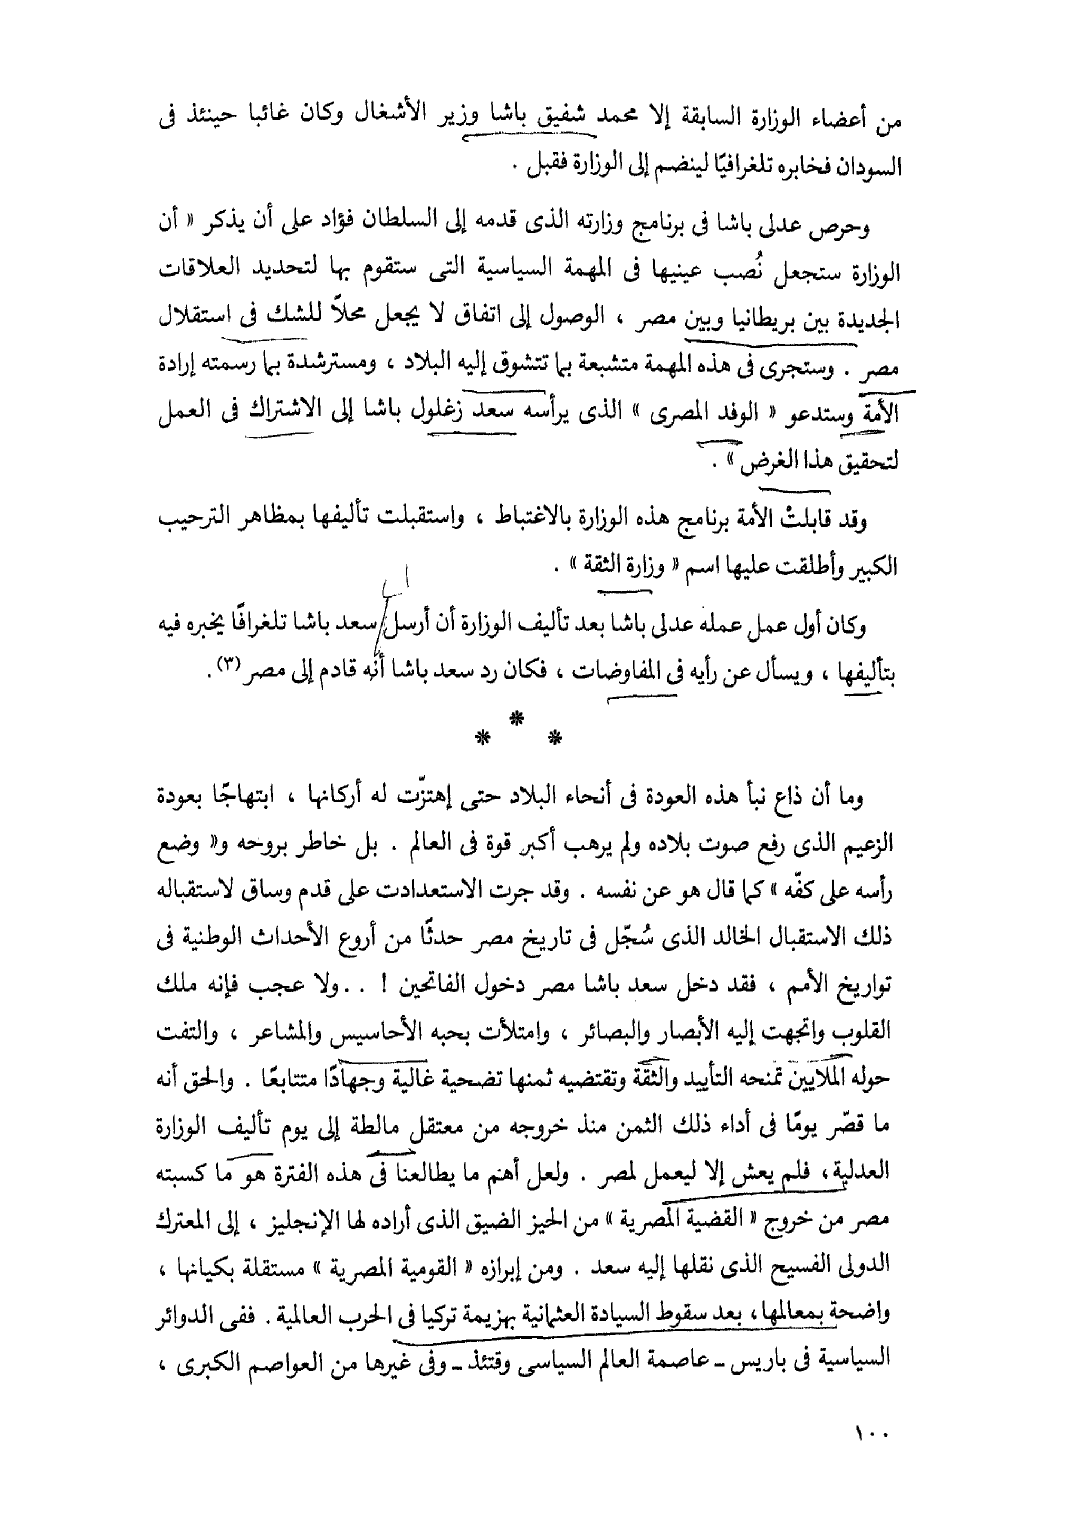 من أعضاء الوزارة السابقة إلا محمد شفيق باشا وزير الأشغال وكان غائبا حينئذ فى
السودان فخابره تلغرافيًا لينضم إلى الوزارة فقبل .
وحرص عدلى باشا فى برنامج وزارته الذى قدمه إلى السلطان فؤاد على أن يذكر « أن
الوزارة ستجعل نُصب عينيها فى المهمة السياسية التى ستقوم بها لتحديد العلاقات
الجديدة بين بريطانيا وبين مصر ، الوصول إلى اتفاق لا يجعل محلاً للشك فى استقلال
مصر . وستجرى فى هذه المهمة متشبعة بما تتشوق إليه البلاد ، ومسترشدة بما رسمته إرادة
الأمة وستدعو « الوفد المصرى » الذى يرأسه سعد زغلول باشا إلى الاشتراك فى العمل
لتحقيق هذا الغرض » .
وقد قابلتْ الأمة برنامج هذه الوزارة بالاغتباط ، واستقبلت تأليفها بمظاهر الترحيب
الكبير وأطلقت عليها اسم « وزارة الثقة » .
وكان أول عمل عمله عدلى باشا بعد تأليف الوزارة أن أرسل سعد باشا تلغرافًا يخبره فيه
بتأليفها ، ويسأل عن رأيه فى المفاوضات ، فكان رد سعد باشا أنه قادم إلى مصر (٣) .
* * *
وما أن ذاع نبأ هذه العودة فى أنحاء البلاد حتى إهتزّت له أركانها ، ابتهاجًا بعودة
الزعيم الذى رفع صوت بلاده ولم يرهب أكبر قوة فى العالم . بل خاطر بروحه و« وضع
رأسه على كفّه » كما قال هو عن نفسه . وقد جرت الاستعدادت على قدم وساق لاستقباله
ذلك الاستقبال الخالد الذى سُجّل فى تاريخ مصر حدثًا من أروع الأحداث الوطنية فى
تواريخ الأمم ، فقد دخل سعد باشا مصر دخول الفاتحين ! . . ولا عجب فإنه ملك
القلوب واتجهت إليه الأبصار والبصائر ، وامتلأت بحبه الأحاسيس والمشاعر ، والتفت
حوله الملايين تمنحه التأييد والثقة وتقتضيه ثمنها تضحية غالية وجهادًا متتابعًا . والحق أنه
ما قصّر يومًا فى أداء ذلك الثمن منذ خروجه من معتقل مالطة إلى يوم تأليف الوزارة
العدلية ، فلم يعش إلا ليعمل لمصر . ولعل أهم ما يطالعنا فى هذه الفترة هو ما كسبته
مصر من خروج « القضية المصرية » من الحيز الضيق الذى أراده لها الإنجليز ، إلى المعترك
الدولى الفسيح الذى نقلها إليه سعد . ومن إبرازه « القومية المصرية » مستقلة بكيانها ،
واضحة بمعالمها ، بعد سقوط السيادة العثمانية بهزيمة تركيا فى الحرب العالمية . ففى الدوائر
السياسية فى باريس ـ عاصمة العالم السياسى وقتئذ ـ وفى غيرها من العواصم الكبرى ،
١٠٠